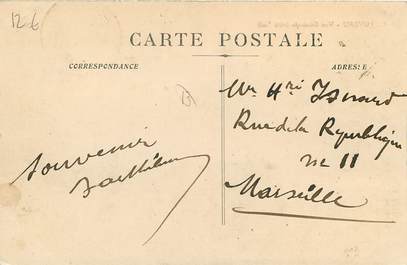 12 €
CARTE POSTALE
CORRESPONDANCE
ADRESSE
Mr Hri Isnard
Rue de la République
no 11
Marseille
Souvenir